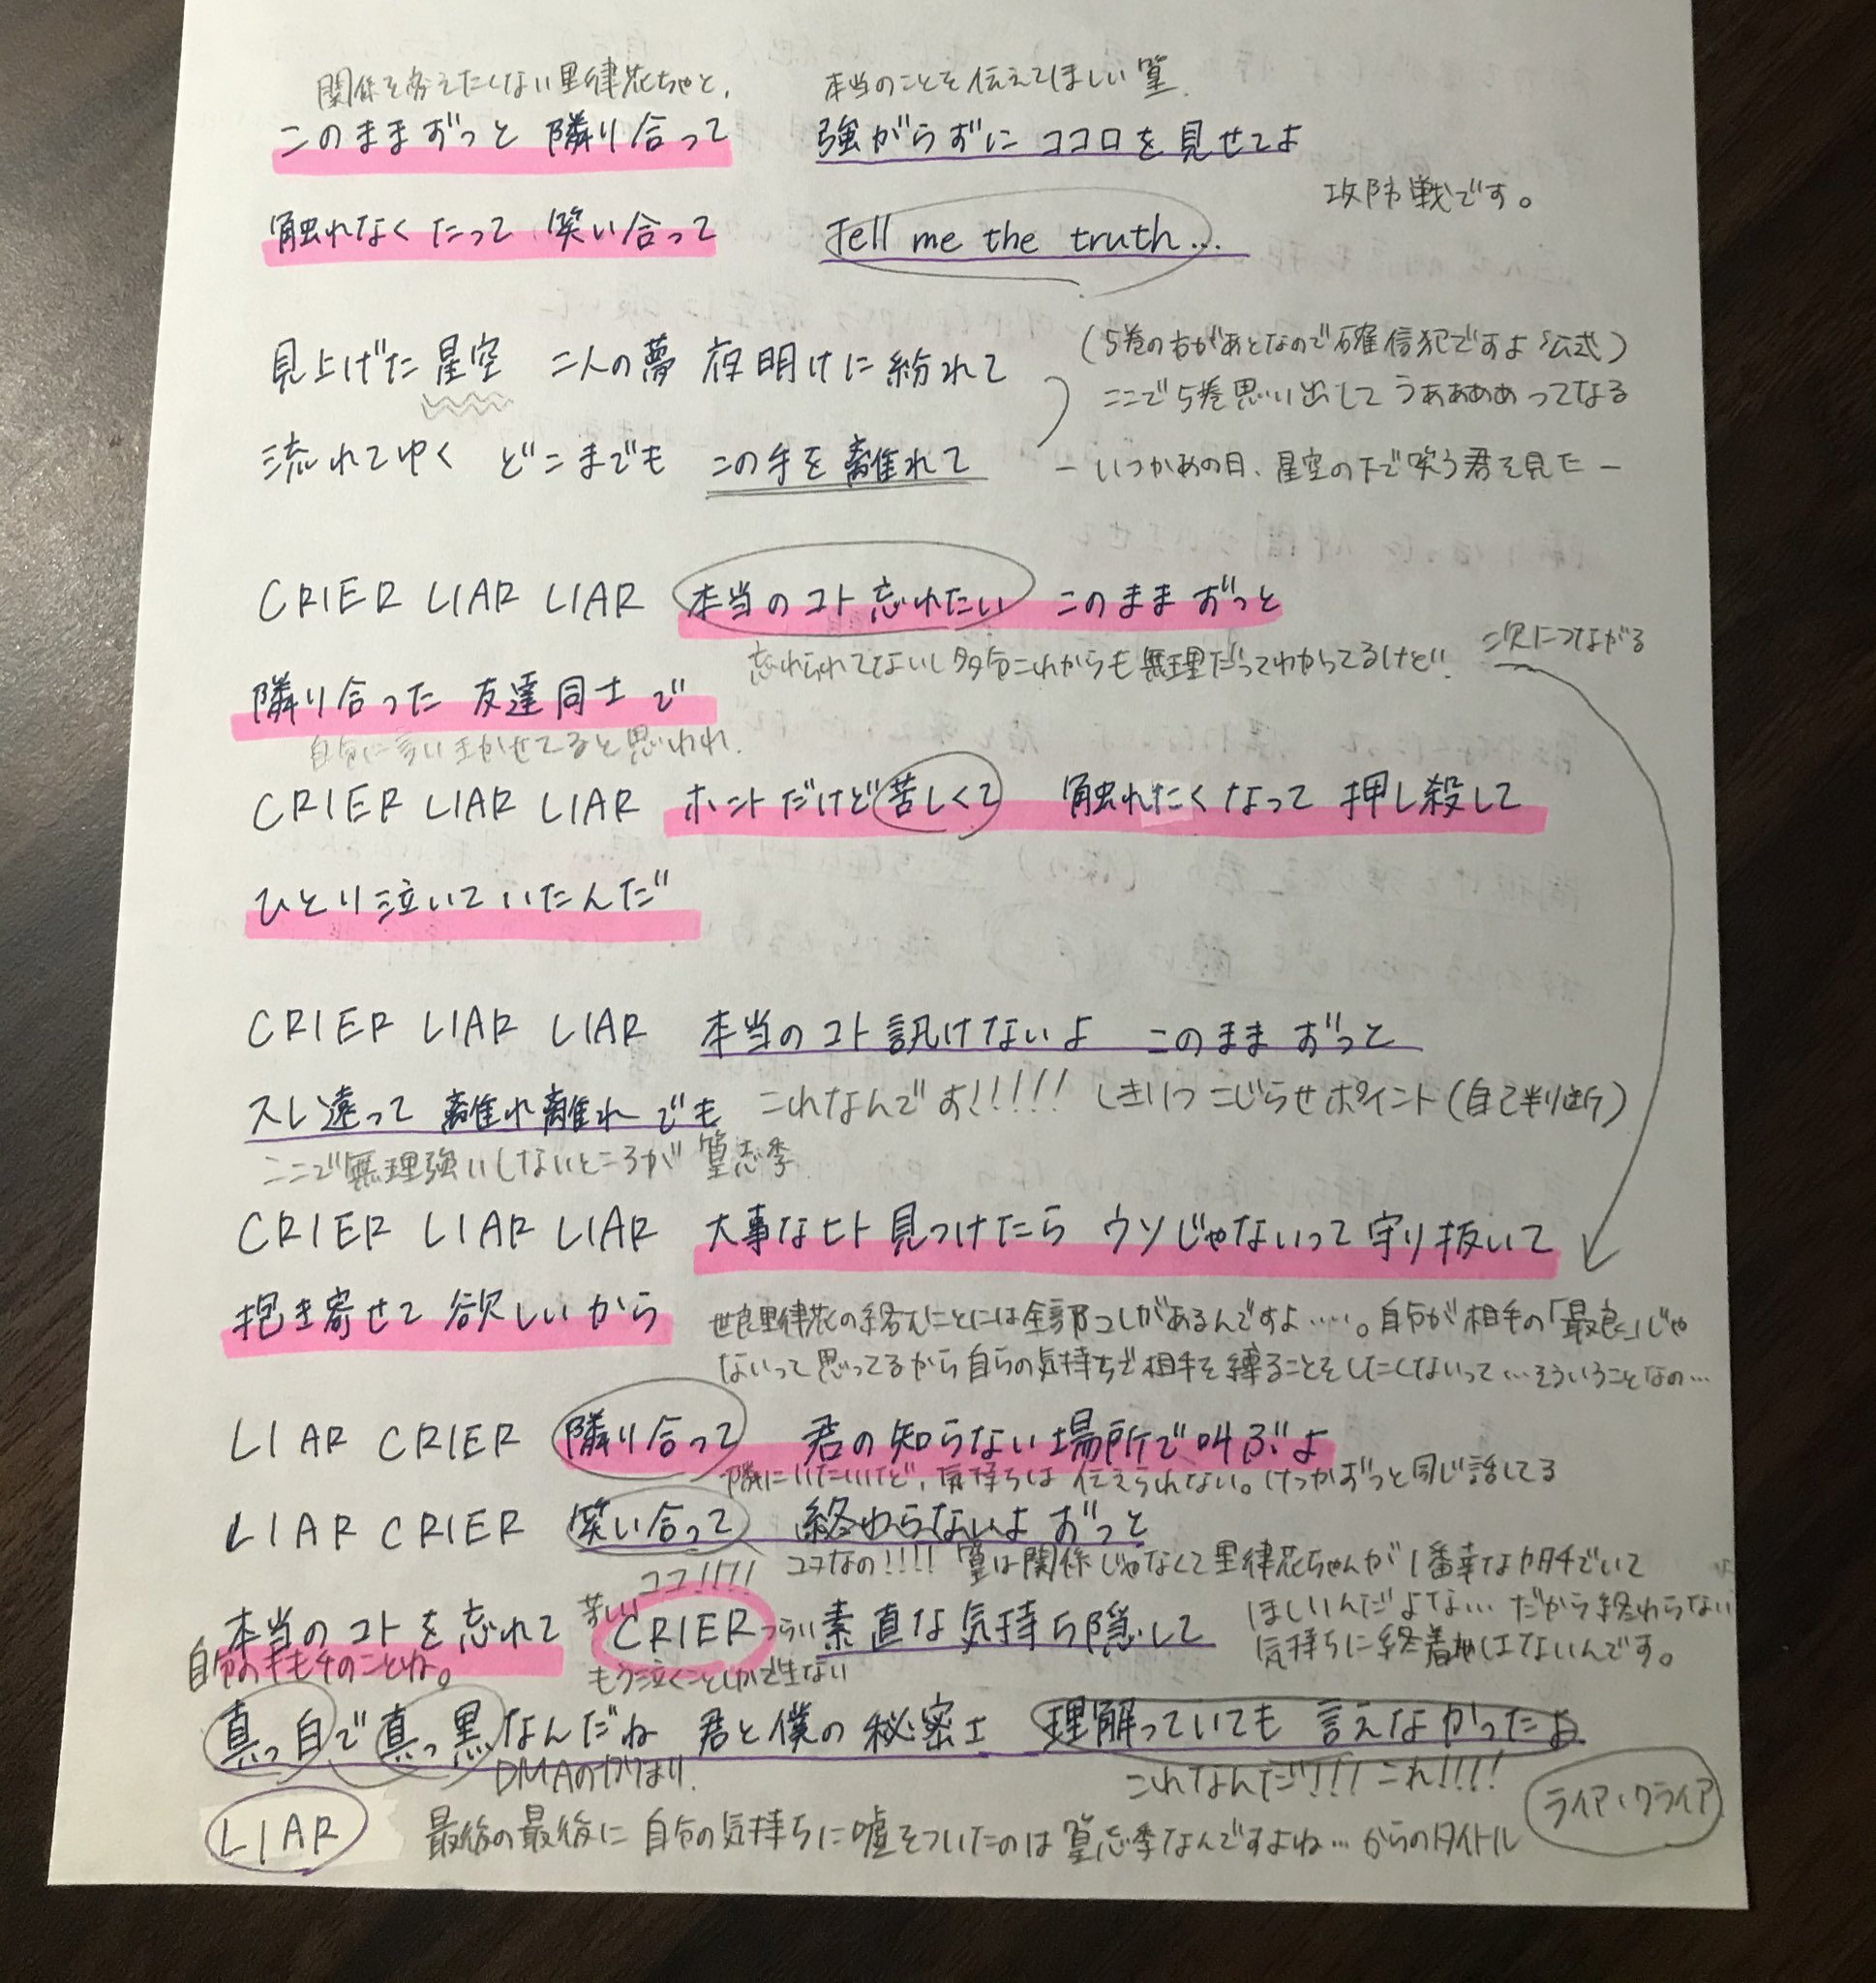 関係を変えたくない里律花ちゃと、 本当のことを伝えてほしい篁
このままずっと 隣り合って 強がらずに ココロを見せてよ
攻防戦です。
触れなくたって 笑い合って Tell me the truth...
(5巻の方があとなので確信犯ですよ公式)
見上げた星空 二人の夢 夜明けに紛れて
ここで5巻思い出してうああああってなる
流れてゆく どこまでも この手を離れて
ーいつかあの日、星空の下で笑う君を見たー
CRIER LIAR LIAR 本当のコト忘れたい このままずっと
忘れられてないし多分これからも無理だってわかってるけど! 次につながる
隣り合った 友達同士で
自分に言い聞かせてると思われ.
CRIER LIAR LIAR ホントだけど苦しくて 触れたくなって 押し殺して
ひとり泣いていたんだ
CRIER LIAR LIAR 本当のコト訊けないよ このままずっと
スレ違って 離れ離れでも これなんです!!!!! しきりつこじらせポイント(自己判断)
ここで無理強いしないところが篁志季
CRIER LIAR LIAR 大事なヒト見つけたら ウソじゃないって守り抜いて
抱き寄せて欲しいから
世良里律花の絡むことには全部コレがあるんですよ……。自分が相手の「最良」じゃ
ないって思ってるから自らの気持ちで相手を縛ることをしたくないって…そういうことなの…
LIAR CRIER 隣り合って 君の知らない場所で叫ぶよ
隣にいたいけど、気持ちは伝えられない。けっかずっと同じ話してる
LIAR CRIER 笑い合って 終わらないよ ずっと
ココ!!!! ココなの!!!! 篁は関係じゃなくて里律花ちゃんが1番幸なカタチでいて
ほしいんだよな… だから終わらない
気持ちに終着地はないんです。
本当のコトを忘れて 苦しい CRIER つらい 素直な気持ち隠して
自分の キモチのことね。 もう泣くことしかできない
真っ白で真っ黒なんだね 君と僕の秘密は 理解っていても 言えなかったよ
DMAの かなり. これなんだ!!! これ!!!!
LIAR 最後の最後に自分の気持ちに嘘をついたのは篁志季なんですよね…からのタイトル ライア・クライア